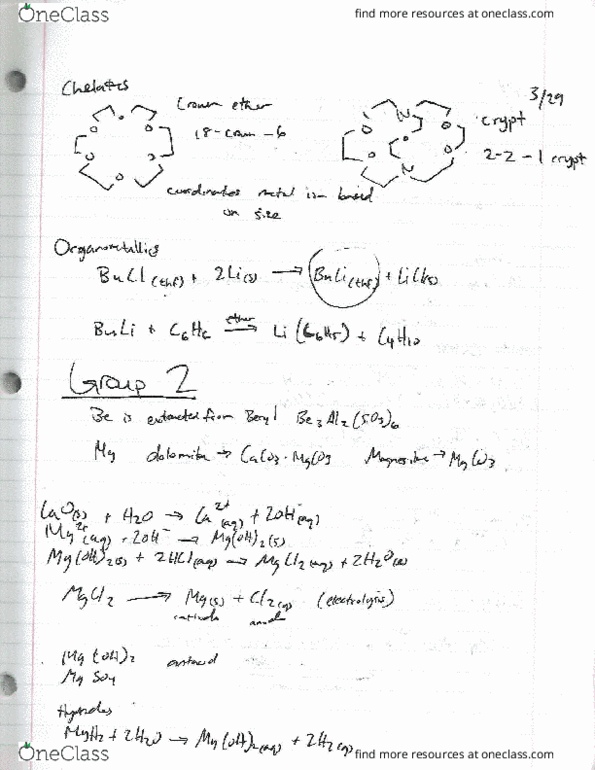 OneClass
find more resources at oneclass.com
3/29
Chelates
Crown ether
18-crown-6
O O O O O O
coordinates metal ion based
on size
N O O O O N
crypt
2-2-1 crypt
Organometallics
BuCl(thf) + 2Li(s) → BuLi(thf) + LiCl(s)
BuLi + C6H6 ether → Li(C6H5) + C4H10
Group 2
Be is extracted from Beryl Be3Al2(SO3)6
Mg dolomite → CaCO3·MgCO3 Magnesite → MgCO3
CaO(s) + H2O → Ca2+(aq) + 2OH-(aq)
Mg2+(aq) + 2OH- → Mg(OH)2(s)
Mg(OH)2(s) + 2HCl(aq) → MgCl2(aq) + 2H2O(l)
MgCl2 → Mg(s) + Cl2(g) (electrolysis)
cathode anode
Mg(OH)2 antacid
MgSO4
Hydrides
MgH2 + 2H2O → Mg(OH)2(aq) + 2H2(g)
OneClass
find more resources at oneclass.com